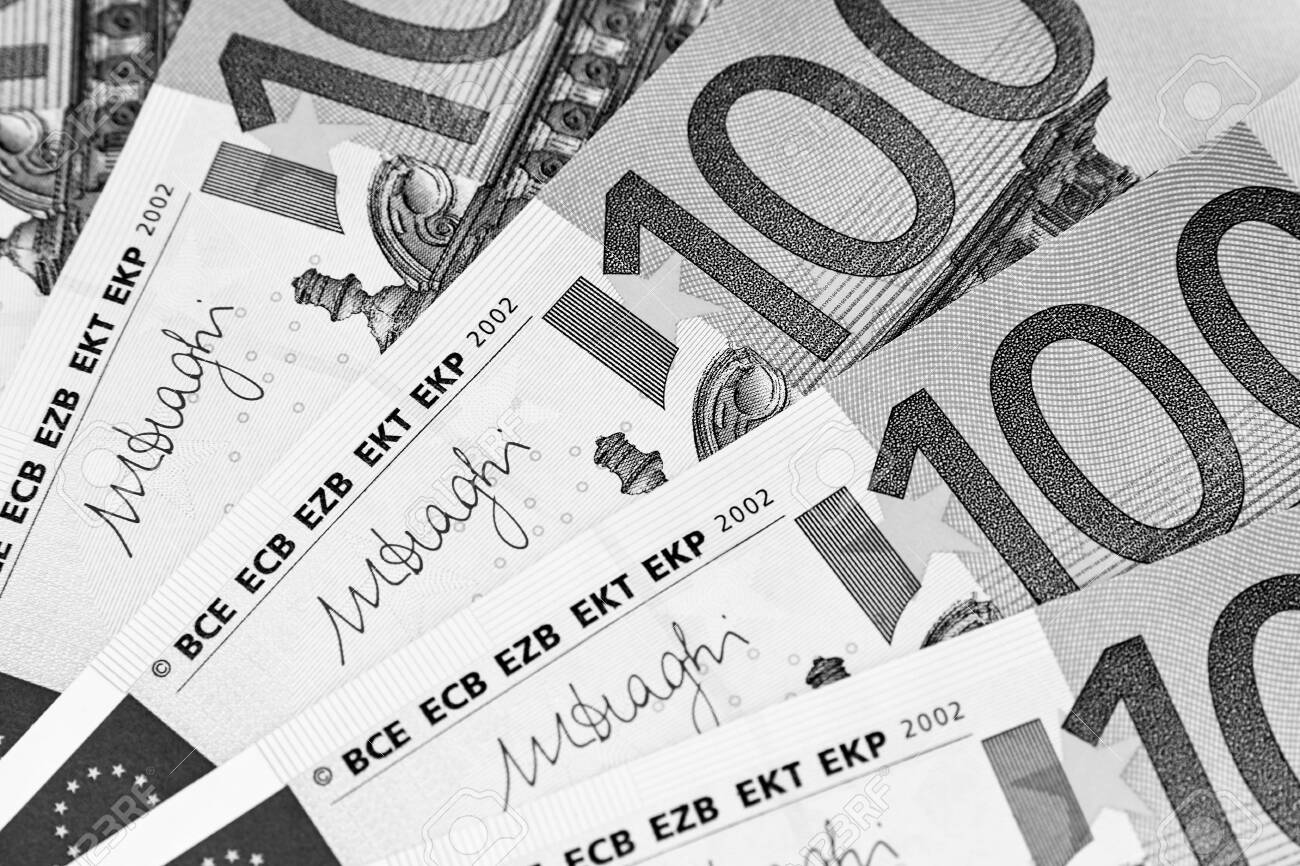 10
ECB EZB EKT EKP 2002
MDraghi
100
© BCE ECB EZB EKT EKP 2002
MDraghi
100
© BCE ECB EZB EKT EKP 2002
MDraghi
10
ECB EZB EKT EKP 2002
123RF